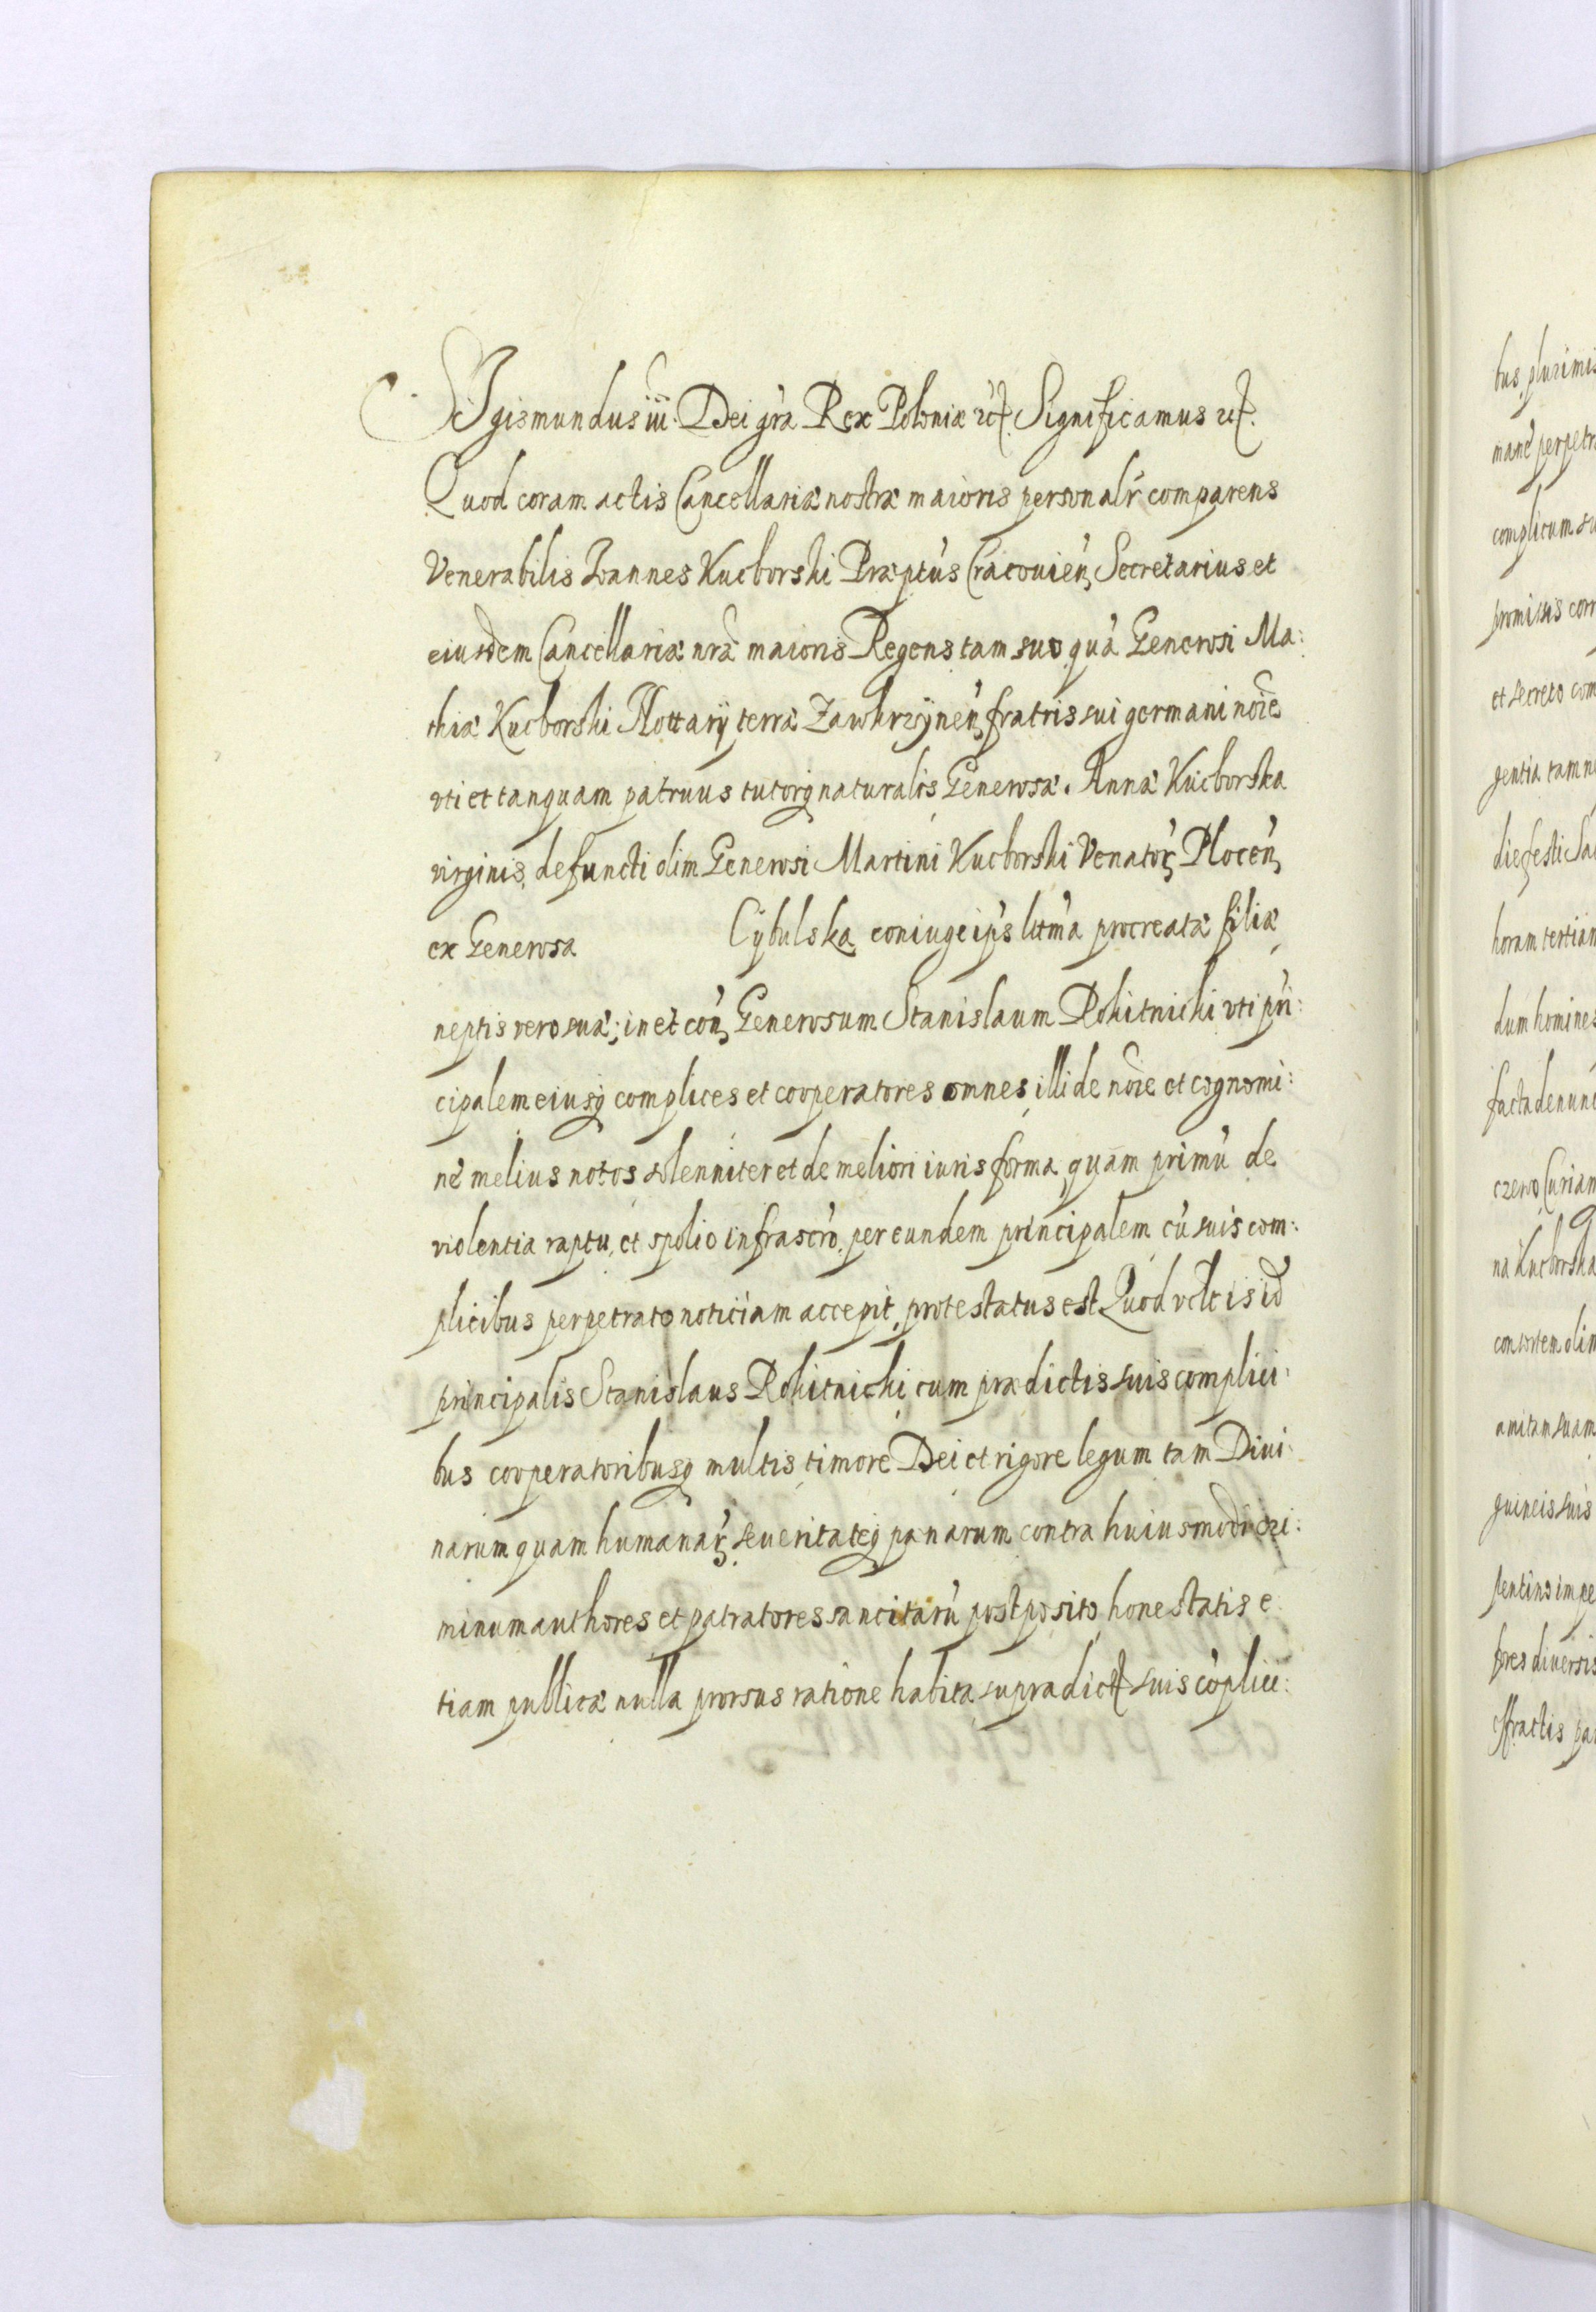 SIgismundus iii. Dei gra Rex Poloniæ etc. Significamus etc.
Quod coram actis Cancellariæ nostræ maioris personalr comparens
Venerabilis Joannes Kucborski Præptus Cracouien Secretarius et
eiusdem Cancellariæ nræ maioris Regens tam suo quà Generosi Ma:
thiæ Kucborski Nottarij terræ Zawkrzynen fratris sui germani noie
vti et tanquam patruus tutorq naturalis Generosæ Annæ Kucborska
virginis, defuncti olim Generosi Martini Kucborski Venator Plocen
ex Generosa Cybulska coniuge ips lttma procreatæ filiæ,
neptis vero suæ; in et con Generosum Stanislaum Rokitnicki vti prin:
cipalem eiusq complices et cooperatores omnes illi de noie et cognomi:
ne melius notos solenniter et de meliori iuris forma, quam primu de
violentia raptu, et spolio infrascro, per eundem principalem cu suis com:
plicibus perpetrato noticiam accepit, protestatus est Quod vltis id
principalis Stanislaus Rokitnicki cum prædictis suis complici:
bus cooperatoribusq multis, timore Dei et rigore legum tam Diui:
narum quam humanar, seueritateq pænarum contra huiusmodi cri:
minum authores et patratores sancitaru postposito, honestatis e:
tiam publicæ nulla prorsus ratione habita, supradict suis coplici:
bus, plurimis
mane perpetr
complicum su
promissis corr
et secreto com
gentia tam n
die festi Sa
horam tertiam
dum homines
facta denunc
czewo Curiam
na Kucborska
consortem olim
amitam suam
guineis suis
pentino impe
fores diuersis
effractis pa